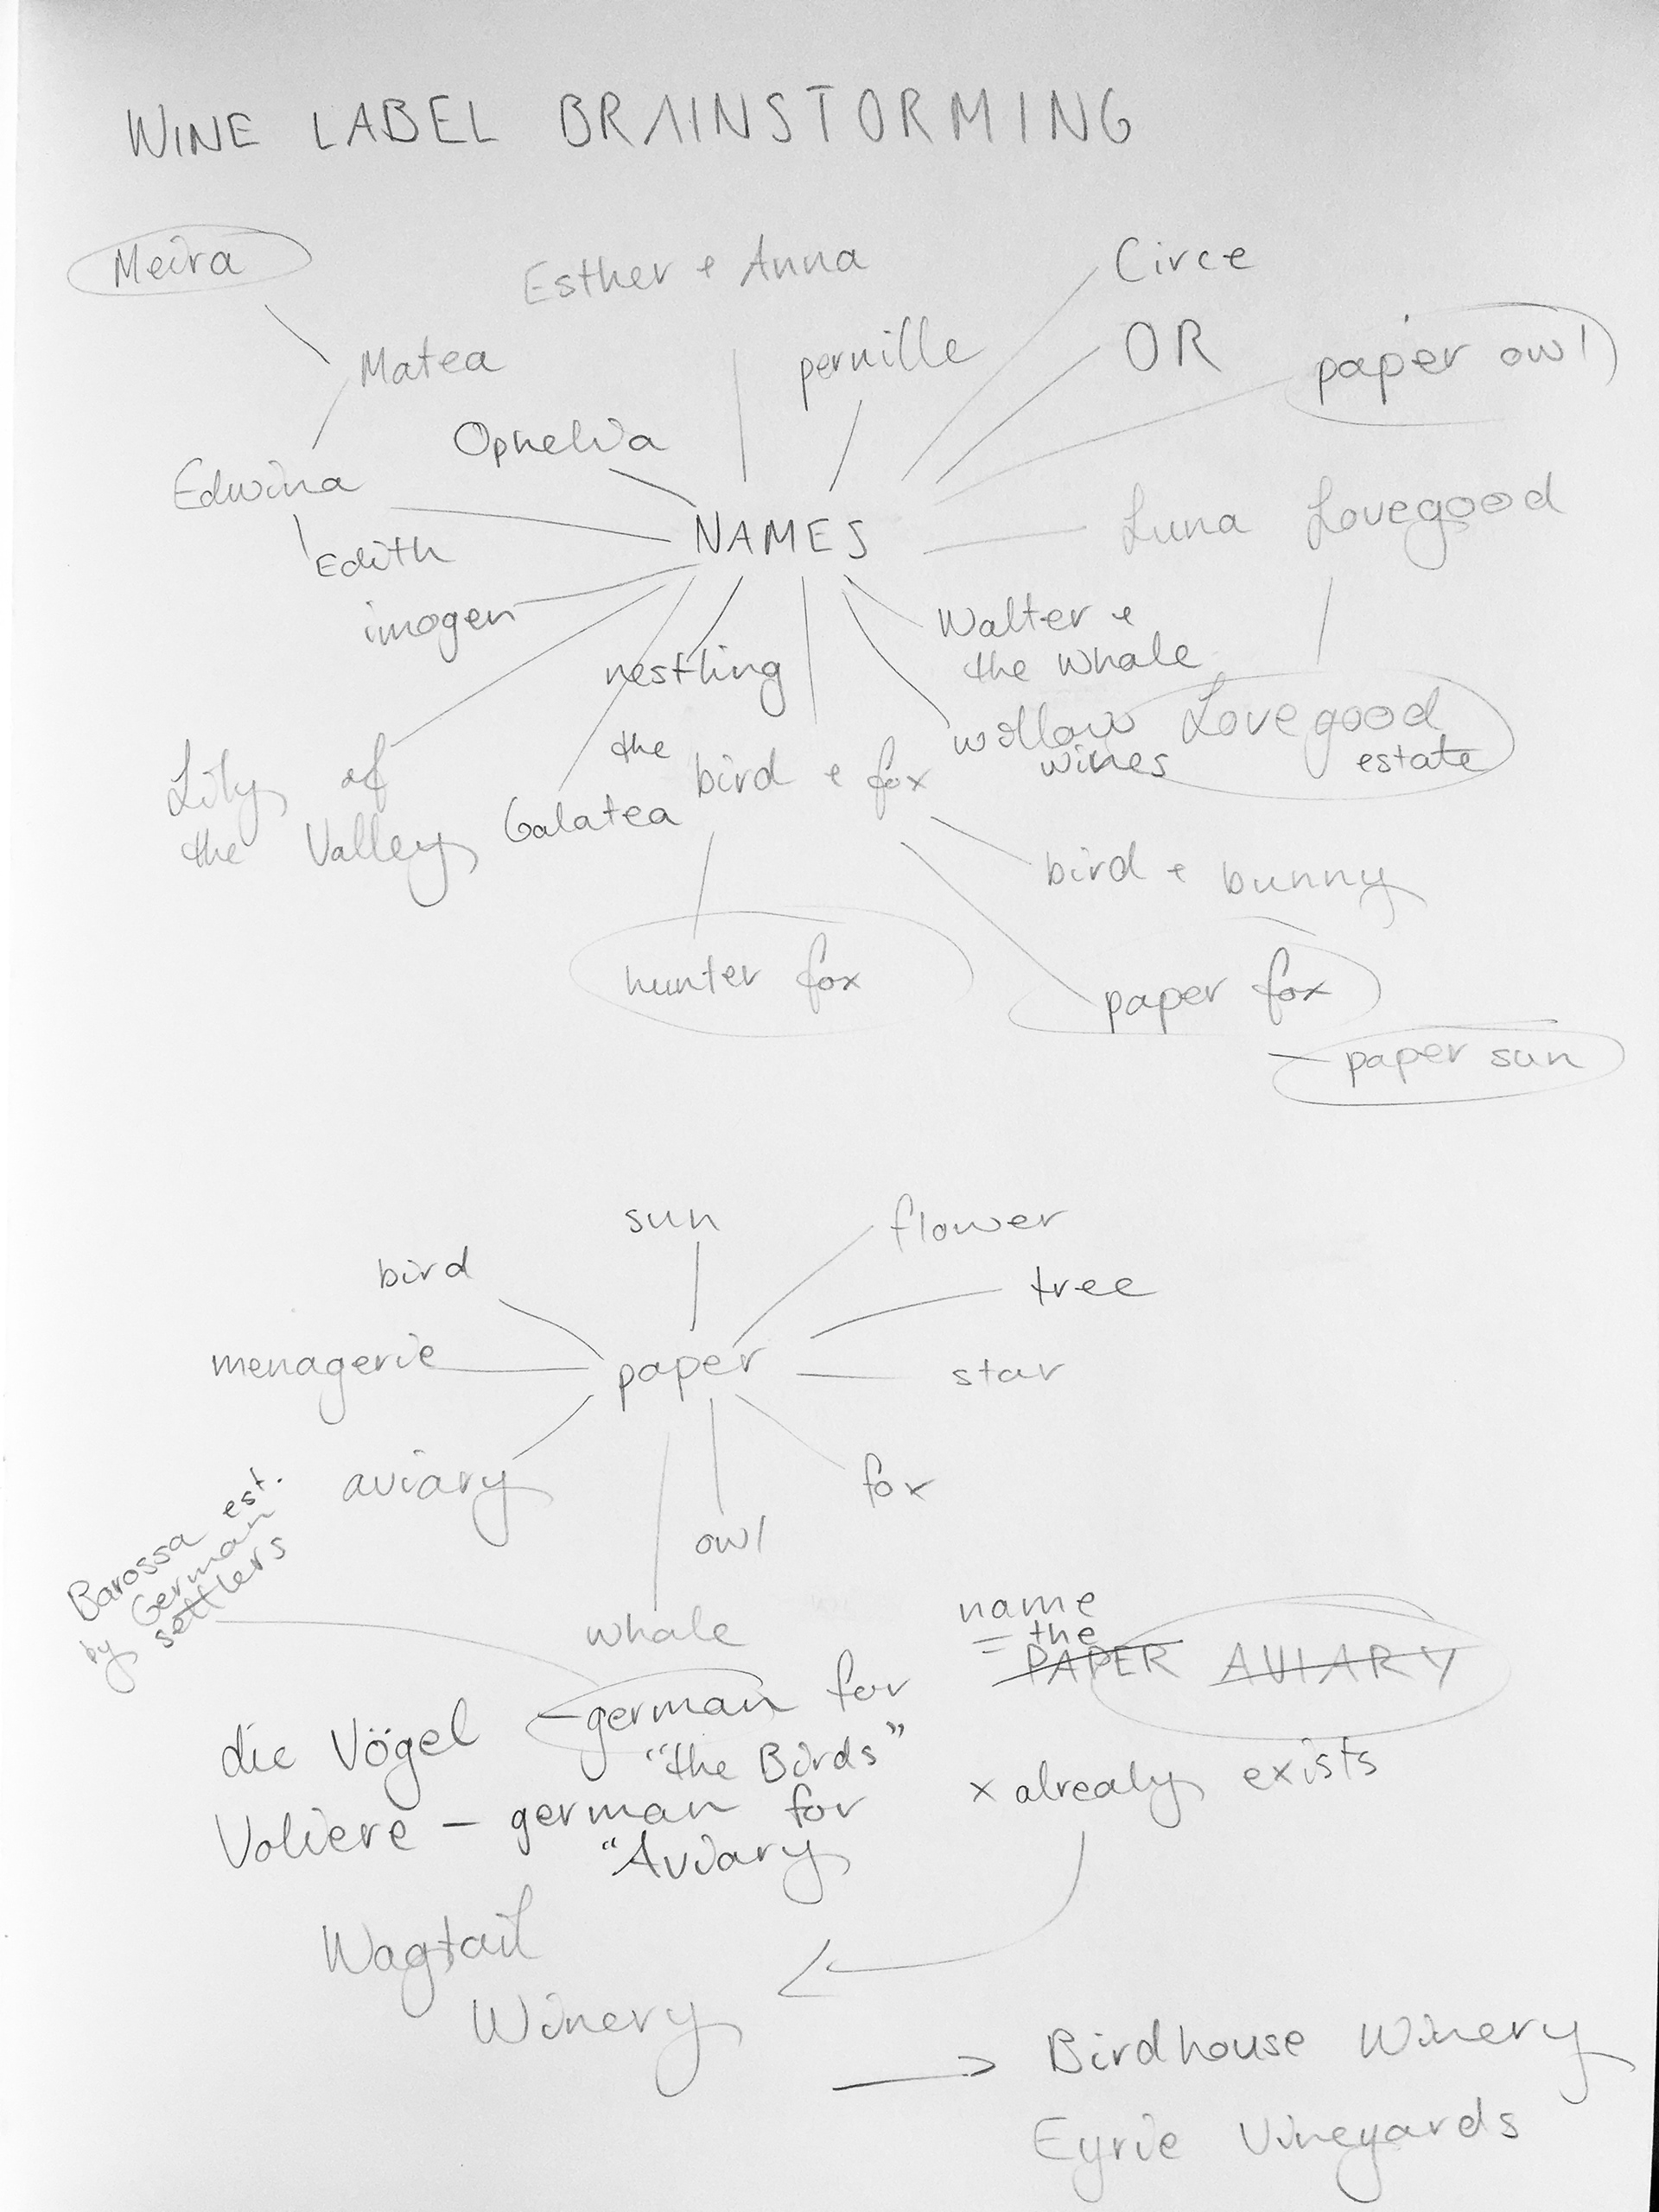 WINE LABEL BRAINSTORMING
Meira
Esther + Anna
Circe
Matea
pernille
OR
paper owl
Ophelia
Edwina
NAMES
Luna Lovegood
Edith
imogen
nestling
Walter +
the whale
willow
wines
Lovegood
estate
Lily of
the Valley
the
bird + fox
Galatea
bird + bunny
hunter fox
paper fox
– paper sun
sun
flower
bird
tree
menagerie
paper
star
aviary
fox
owl
whale
Barossa est.
by German
settlers
name
= the
PAPER AVIARY
die Vögel – german for
"the Birds"
x already exists
Voliere – german for
"Aviary
Wagtail
Winery
Birdhouse Winery
Eyrie Vineyards